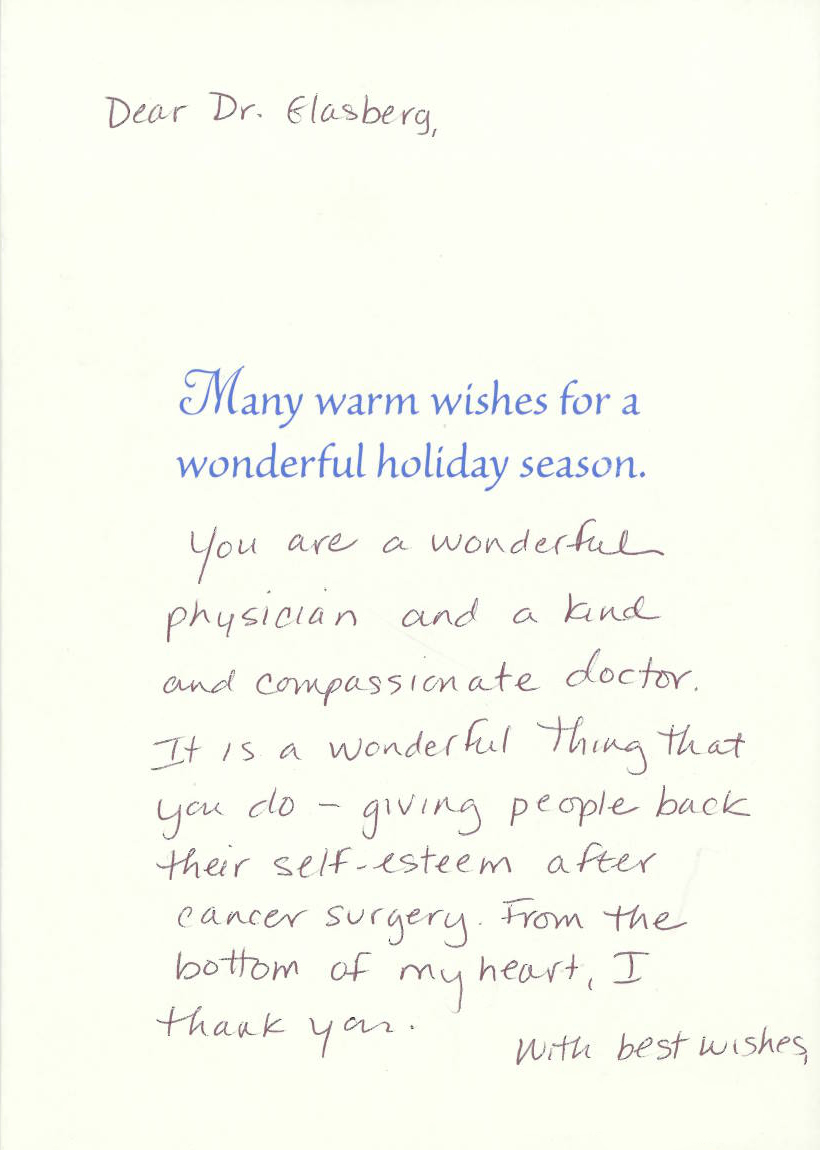 Dear Dr. Glasberg,
Many warm wishes for a
wonderful holiday season.
You are a wonderful
physician and a kind
and compassionate doctor.
It is a wonderful thing that
you do – giving people back
their self-esteem after
cancer surgery. From the
bottom of my heart, I
thank you.
With best wishes,